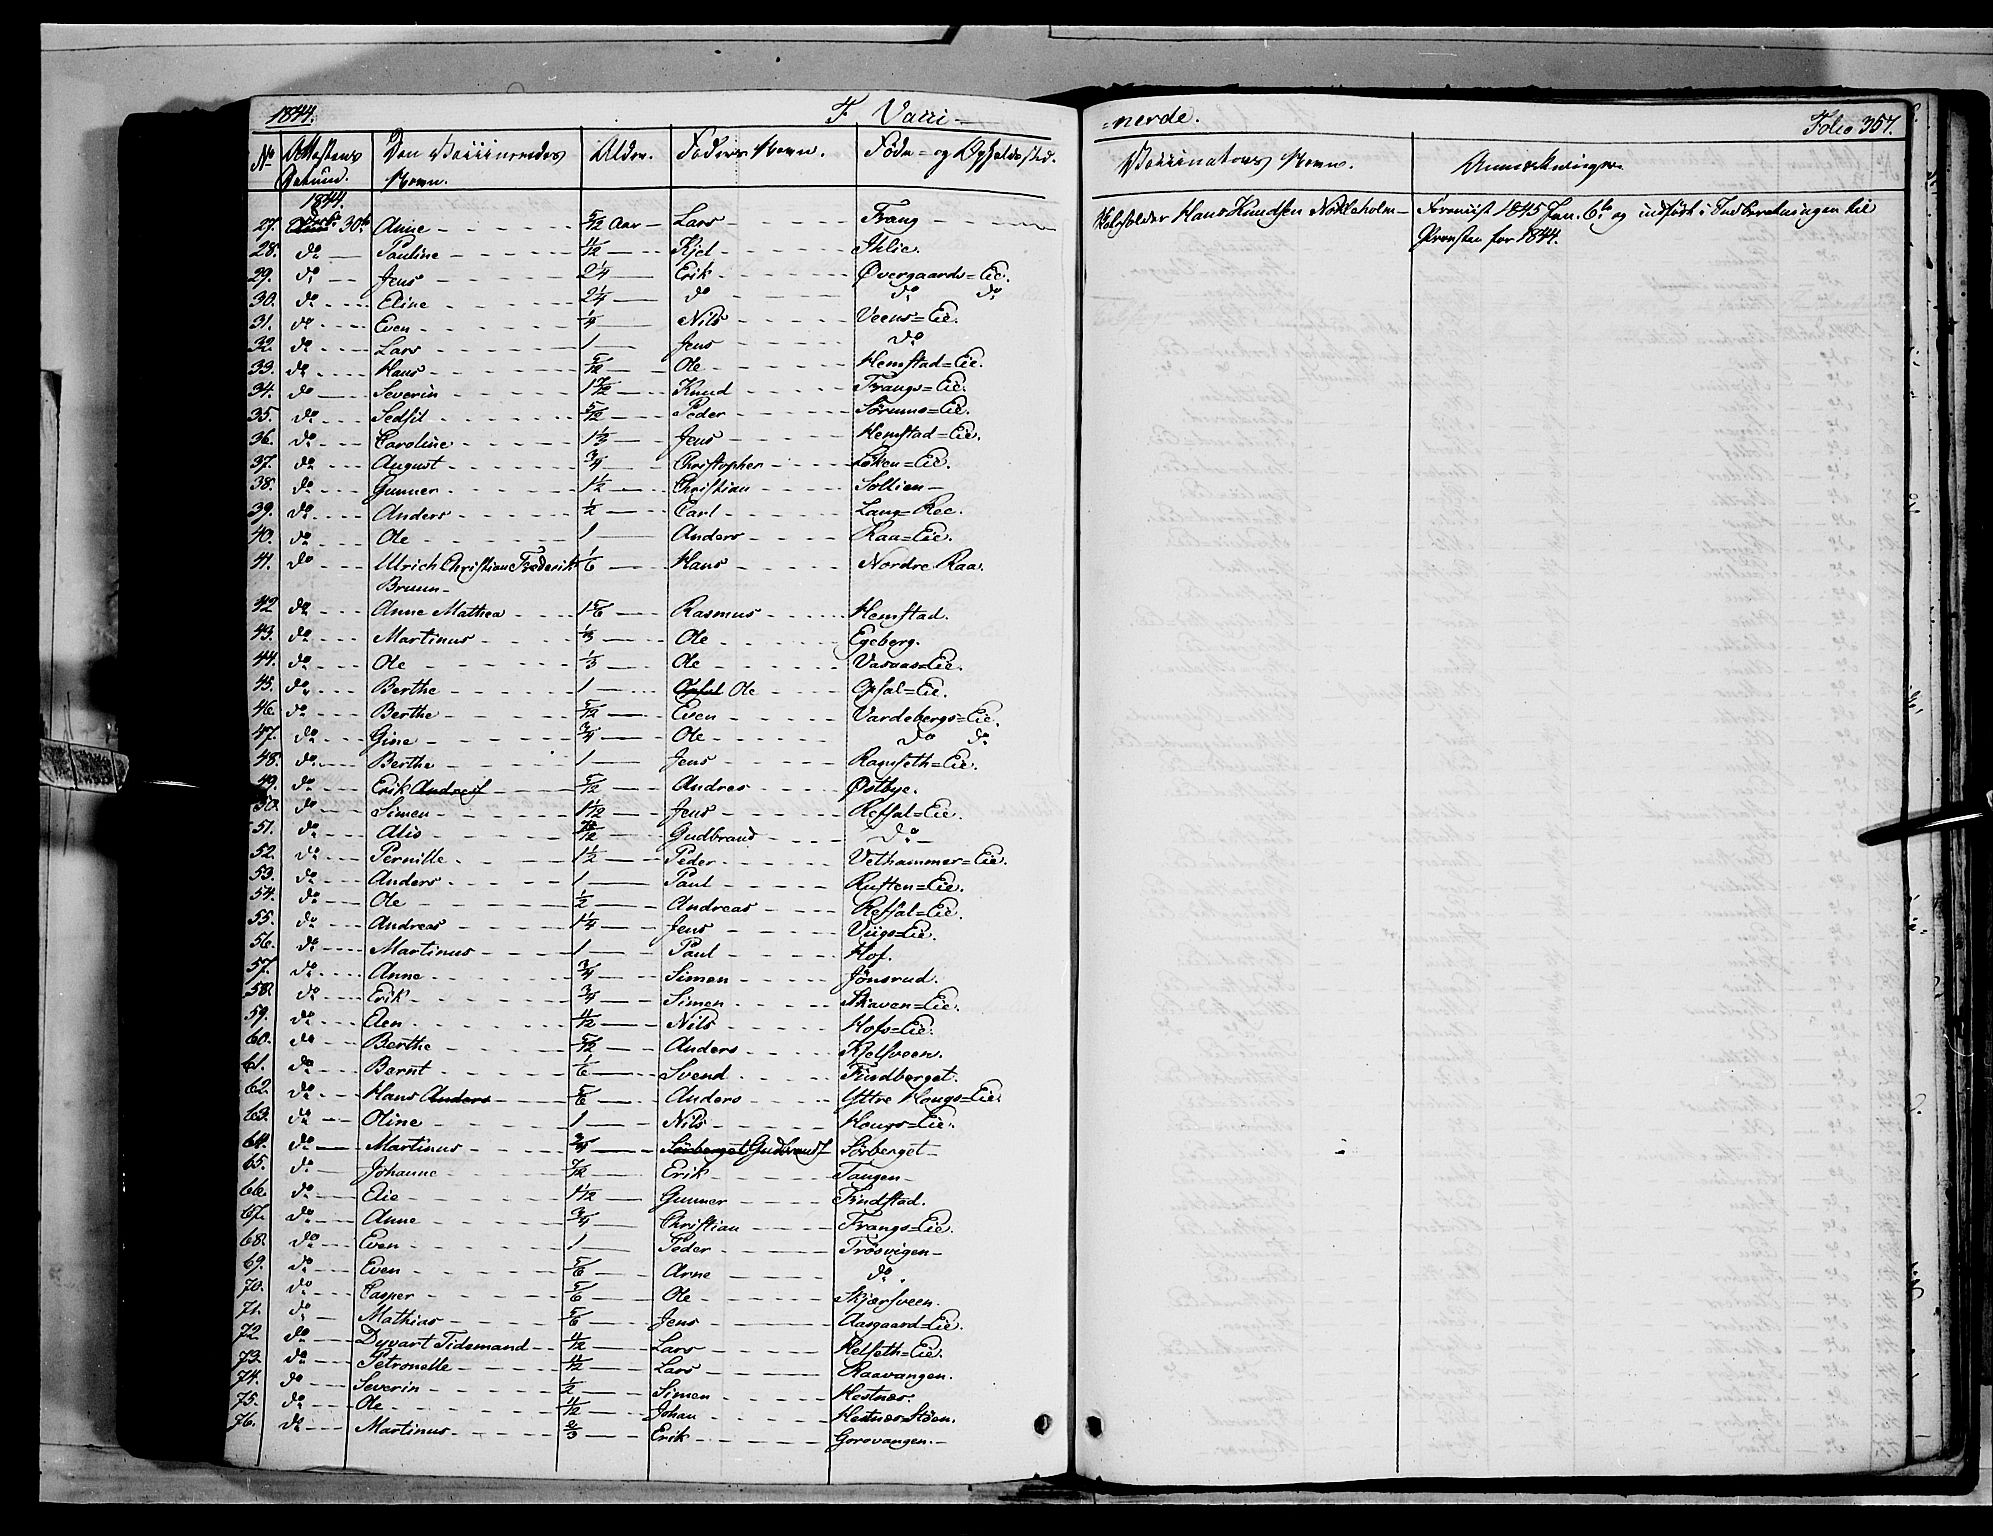 1844. F. Vacci-
No Attestens Datum. Den Vaccineredes Navn. Alder. Faders Navn. Føde- og Opholdssted.
1844.
27. Decbr 30te Anne 5/12 Aar Lars Frang
28. do Pauline 4/12 Kjel Ihlie.
29. do Jens 2 1/4 Erik Overgaards=Eie.
30. do Eline 2 1/4 do do do
31. do Even 1/4 Nils Veens=Eie.
32. do Lars 1 Jens do
33. do Hans 5/12 Ole Hemstad=Eie.
34. do Severin 1 7/12 Knud Frangs=Eie.
35. do Sedsil 5/12 Peder Sørums=Eie.
36. do Caroline 1 1/3 Jens Hemstad=Eie.
37. do August 3/4 Christopher Løken=Eie.
38. do Gunner 1 1/2 Christian Sollien
39. do Anders 1/2 Carl Lang=Ree.
40. do Ole 1 Anders Raa=Eie.
41. do Ulrich Christian Frederik 1/6 Hans Nordre Raa.
Bruun
42 do Anne Mathea 1 5/6 Rasmus Hemstad.
43. do Martinus 1/3 Ole Egeberg.
44. do Ole 1/3 Ole Vasaas=Eie.
45. do Berthe 1 Opsal Ole Opsal=Eie.
46. do Berthe 5/12 Even Vardebergs=Eie.
47. do Gine 3/4 Ole do do
48. do Berthe 1 Jens Ragnseth=Eie.
49. do Erik Andreas 5/12 Andres Østbye.
50. do Simen 1 1/12 Jens Refsal=Eie.
51. do Alis 7/12 Gudbrand do
52. do Pernille 1 1/2 Peder Vethammer=Eie.
53. do Anders 1 Paul Rusten=Eie.
54. do Ole 1/2 Andreas Refsal=Eie.
55. do Andreas 1 1/4 Jens Viigs=Eie.
56. do Martinus 1 Paul Hof.
57. do Anne 3/4 Simen Jönsrud.
58. do Erik 3/4 Simen Skaven=Eie.
59. do Elen 4/12 Nils Hofs=Eie.
60. do Berthe 5/12 Anders Kjelsveen.
61. do Bernt 1/6 Svend Findberget.
62. do Hans Anders 5/6 Anders Yttre Hougs=Eie.
63. do Oline 1 Nils Hougs=Eie.
64. do Martinus 3/4 Sørberget Gudbrands Sørberget
65. do Johanne 7/12 Erik Tangen
66. do Elie 1 1/12 Gunner Findstad.
67. do Anne 3/4 Christian Frangs=Eie.
68. do Even 1 Peder Trøsvigen
69. do Even 5/6 Arne do
70. do Casper 5/6 Ole Skjærsveen.
71. do Mathias 5/6 Jens Aasgaard=Eie.
72. do Dyvart Tidemand 4/12 Lars Helseth=Eie.
73. do Petronelle 4/12 Lars Raavangen.
74. do Severin 1/2 Simen Hestnæs.
75. do Ole 4/12 Johan Hestnæs Støen.
76. do Martinus 2/3 Erik Gorovangen.
=nerde. Folio 357.
Vaccinators Navn. Anmærkninger
Klokker Hans Knudsen Nøkleholm Forevist 1845 Jan. 6te og indført i Indberetningen til
Provsten for 1844.